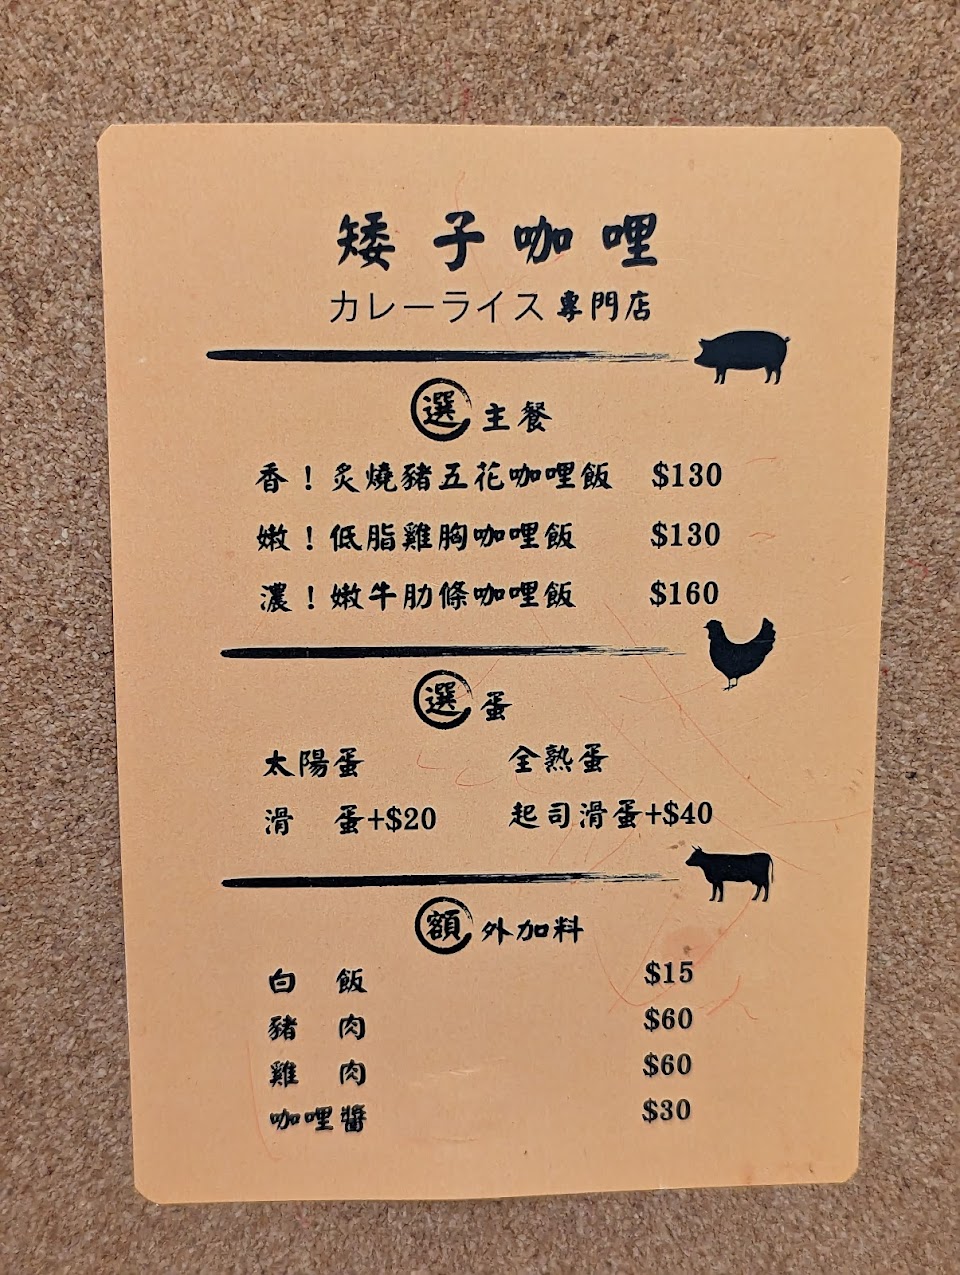 矮子咖哩
カレーライス專門店
選主餐
香！炙燒豬五花咖哩飯 $130
嫩！低脂雞胸咖哩飯 $130
濃！嫩牛肋條咖哩飯 $160
選蛋
太陽蛋 全熟蛋
滑 蛋+$20 起司滑蛋+$40
額外加料
白 飯 $15
豬 肉 $60
雞 肉 $60
咖哩醬 $30